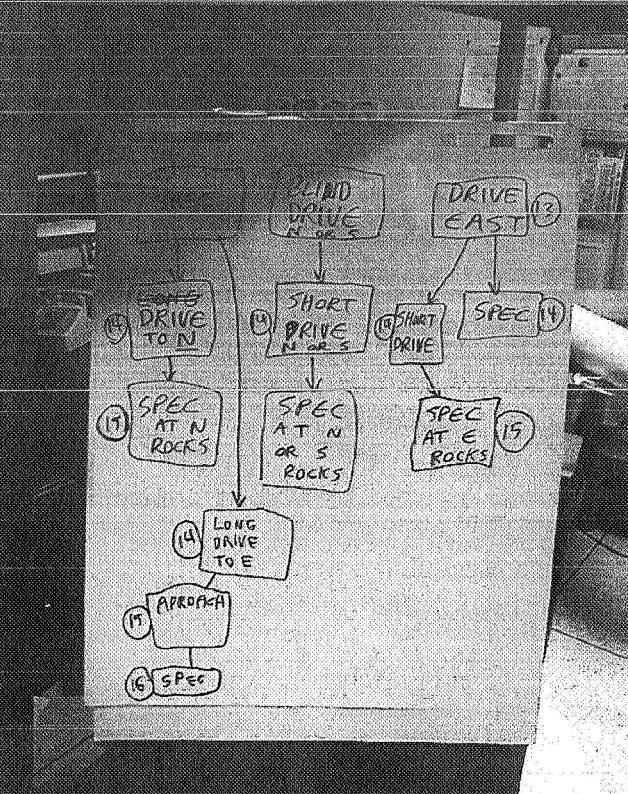 BLIND
DRIVE
N OR S
DRIVE
EAST
13
14
DRIVE
TO N
14
SHORT
DRIVE
N OR S
SHORT
DRIVE
SPEC
14
SPEC
AT N
ROCKS
SPEC
AT N
OR S
ROCKS
SPEC
AT E
ROCKS
15
14
LONG
DRIVE
TO E
APROACH
16
SPEC